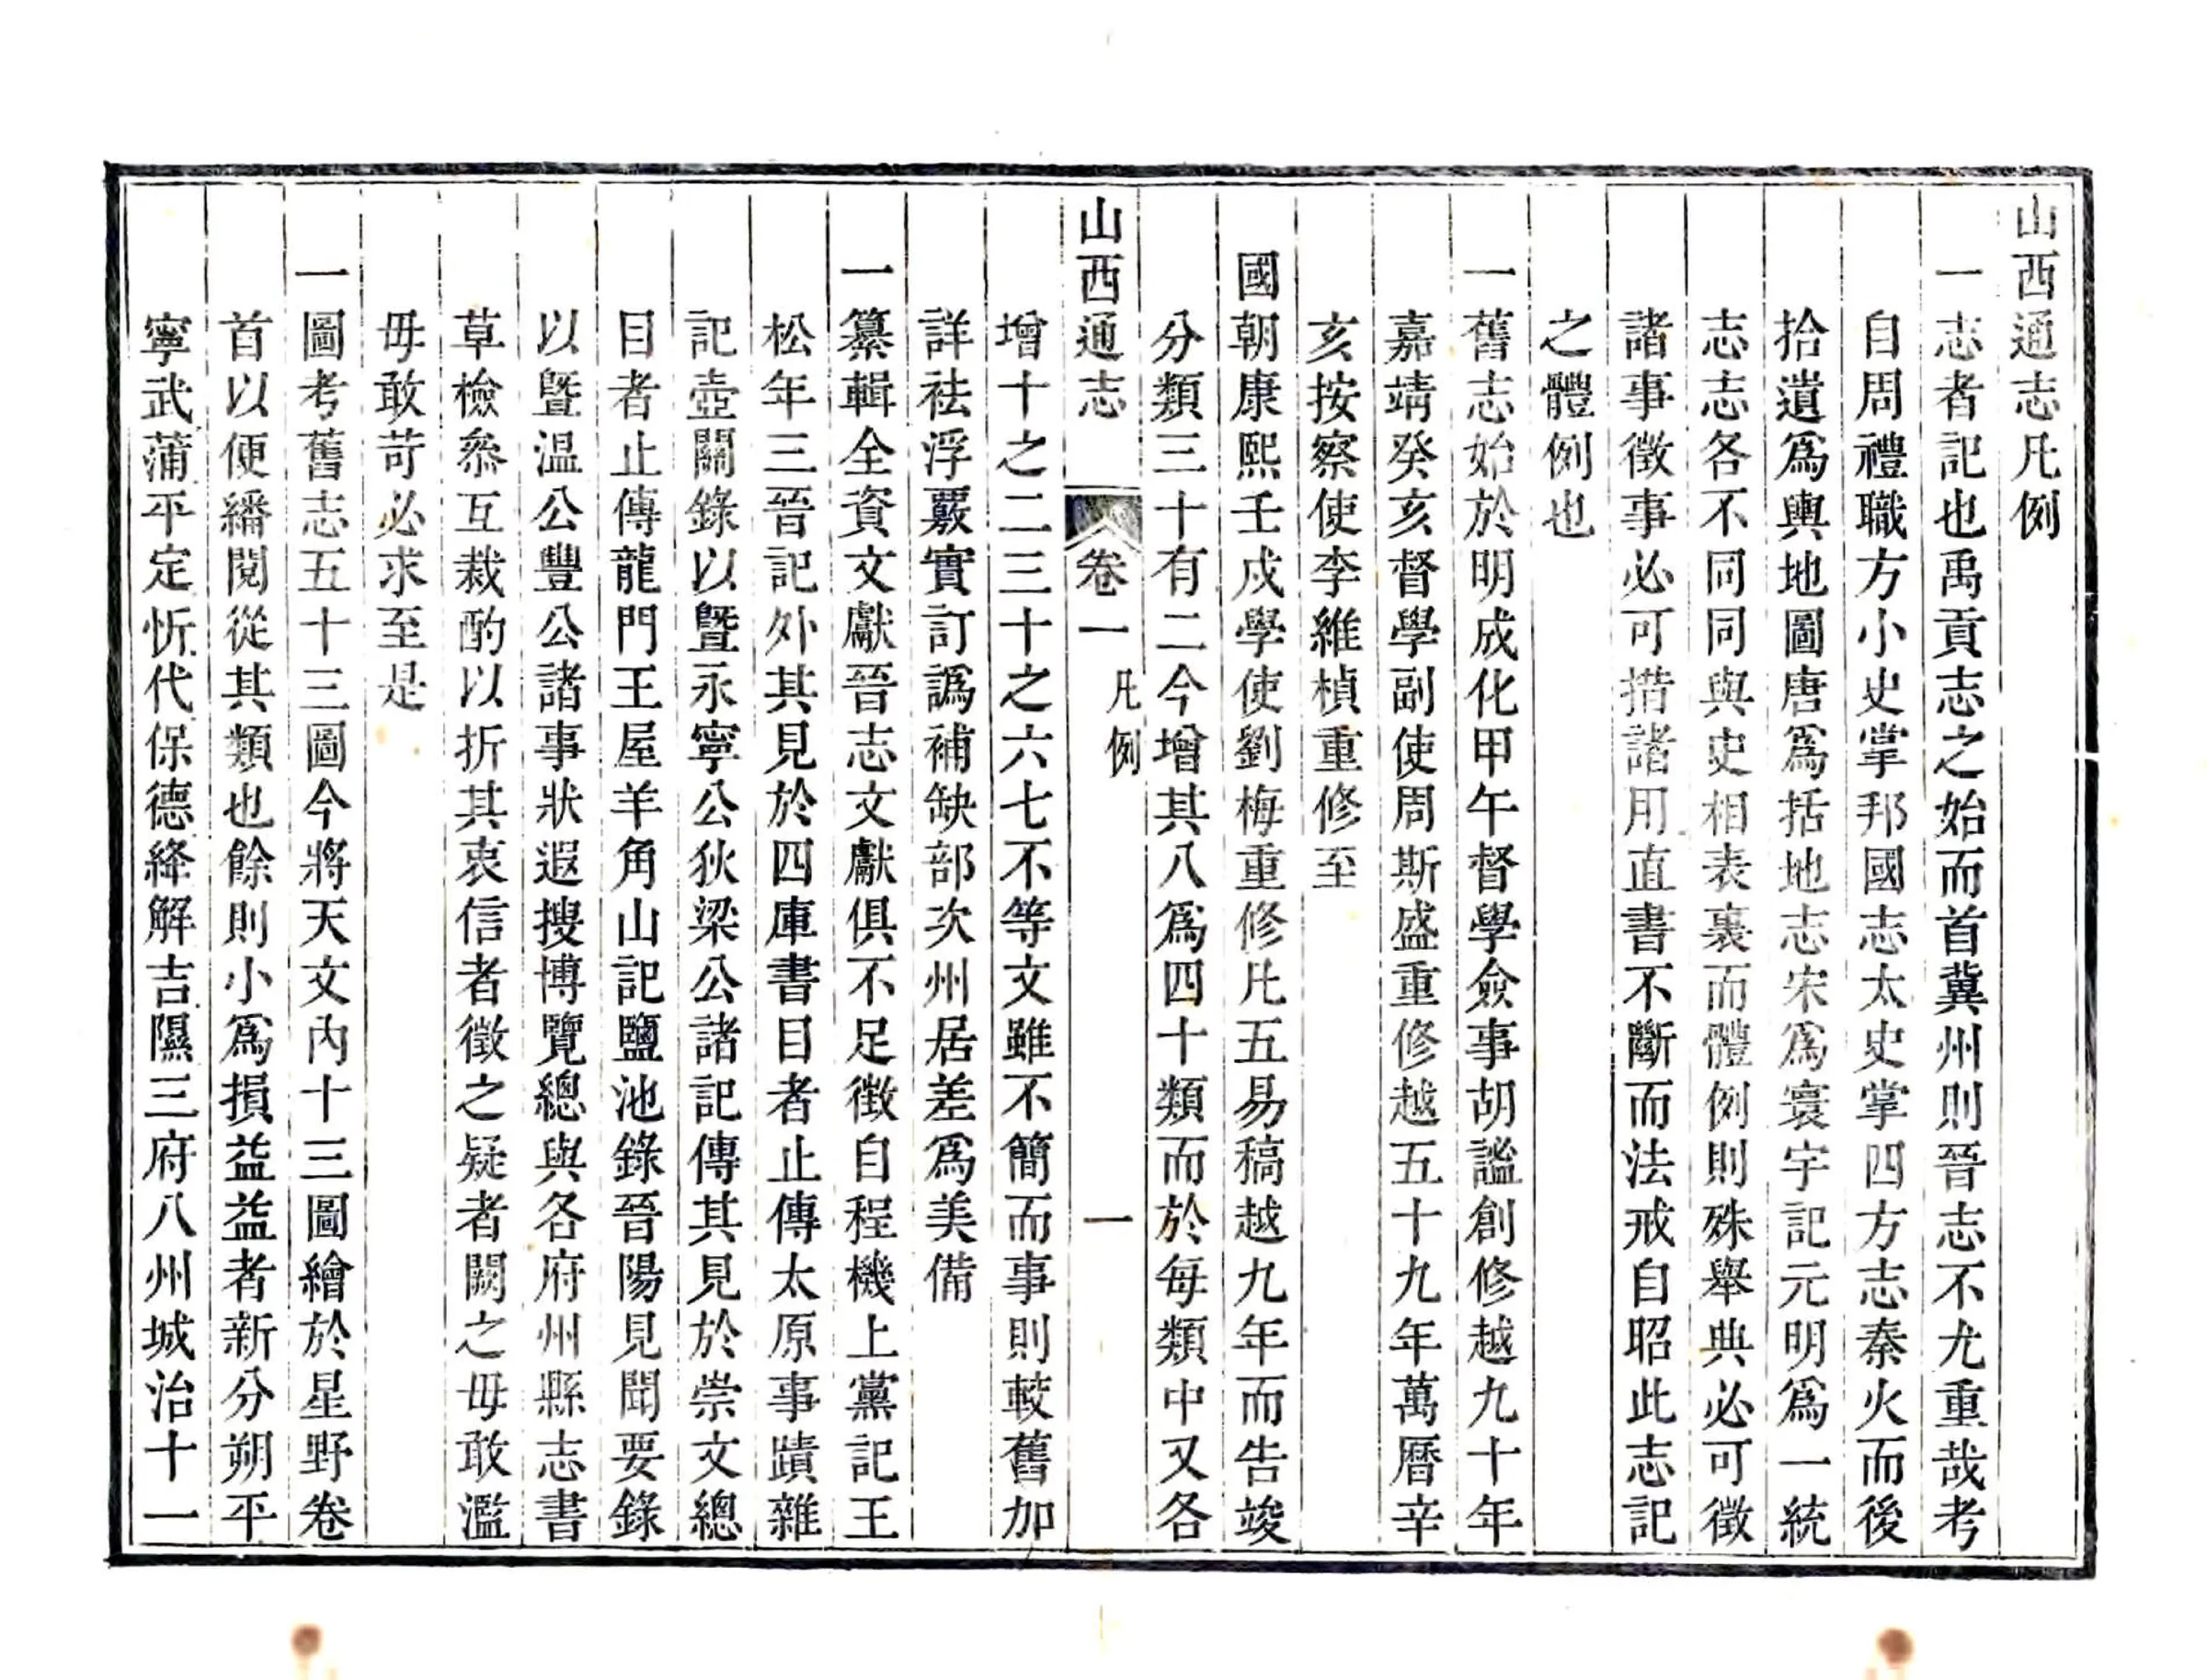 山西通志凡例
一志者記也禹貢志之始而首冀州則晉志不尤重哉考
自周禮職方小史掌邦國志太史掌四方志秦火而後
拾遺爲輿地圖唐爲括地志宋爲寰宇記元明爲一統
志志各不同同與史相表裏而體例則殊舉典必可徵
諸事徵事必可措諸用直書不斷而法戒自昭此志記
之體例也
一舊志始於明成化甲午督學僉事胡謐創修越九十年
嘉靖癸亥督學副使周斯盛重修越五十九年萬曆辛
亥按察使李維楨重修至
國朝康熙壬戌學使劉梅重修凡五易稿越九年而告竣
分類三十有二今增其八爲四十類而於每類中又各
山西通志 卷一 凡例 一
增十之二三十之六七不等文雖不簡而事則較舊加
詳祛浮覈實訂譌補缺部次州居差爲美備
一纂輯全資文獻晉志文獻俱不足徵自程機上黨記王
松年三晉記外其見於四庫書目者止傳太原事蹟雜
記壺關錄以暨永寧公狄梁公諸記傳其見於崇文總
目者止傳龍門王屋羊角山記鹽池錄晉陽見聞要錄
以暨温公豐公諸事狀遐搜博覽總與各府州縣志書
草檢叅互裁酌以折其衷信者徵之疑者闕之毋敢濫
毋敢苛必求至是
一圖考舊志五十三圖今將天文內十三圖繪於星野卷
首以便繙閱從其類也餘則小爲損益益者新分朔平
寧武蒲平定忻代保德絳解吉隰三府八州城治十一